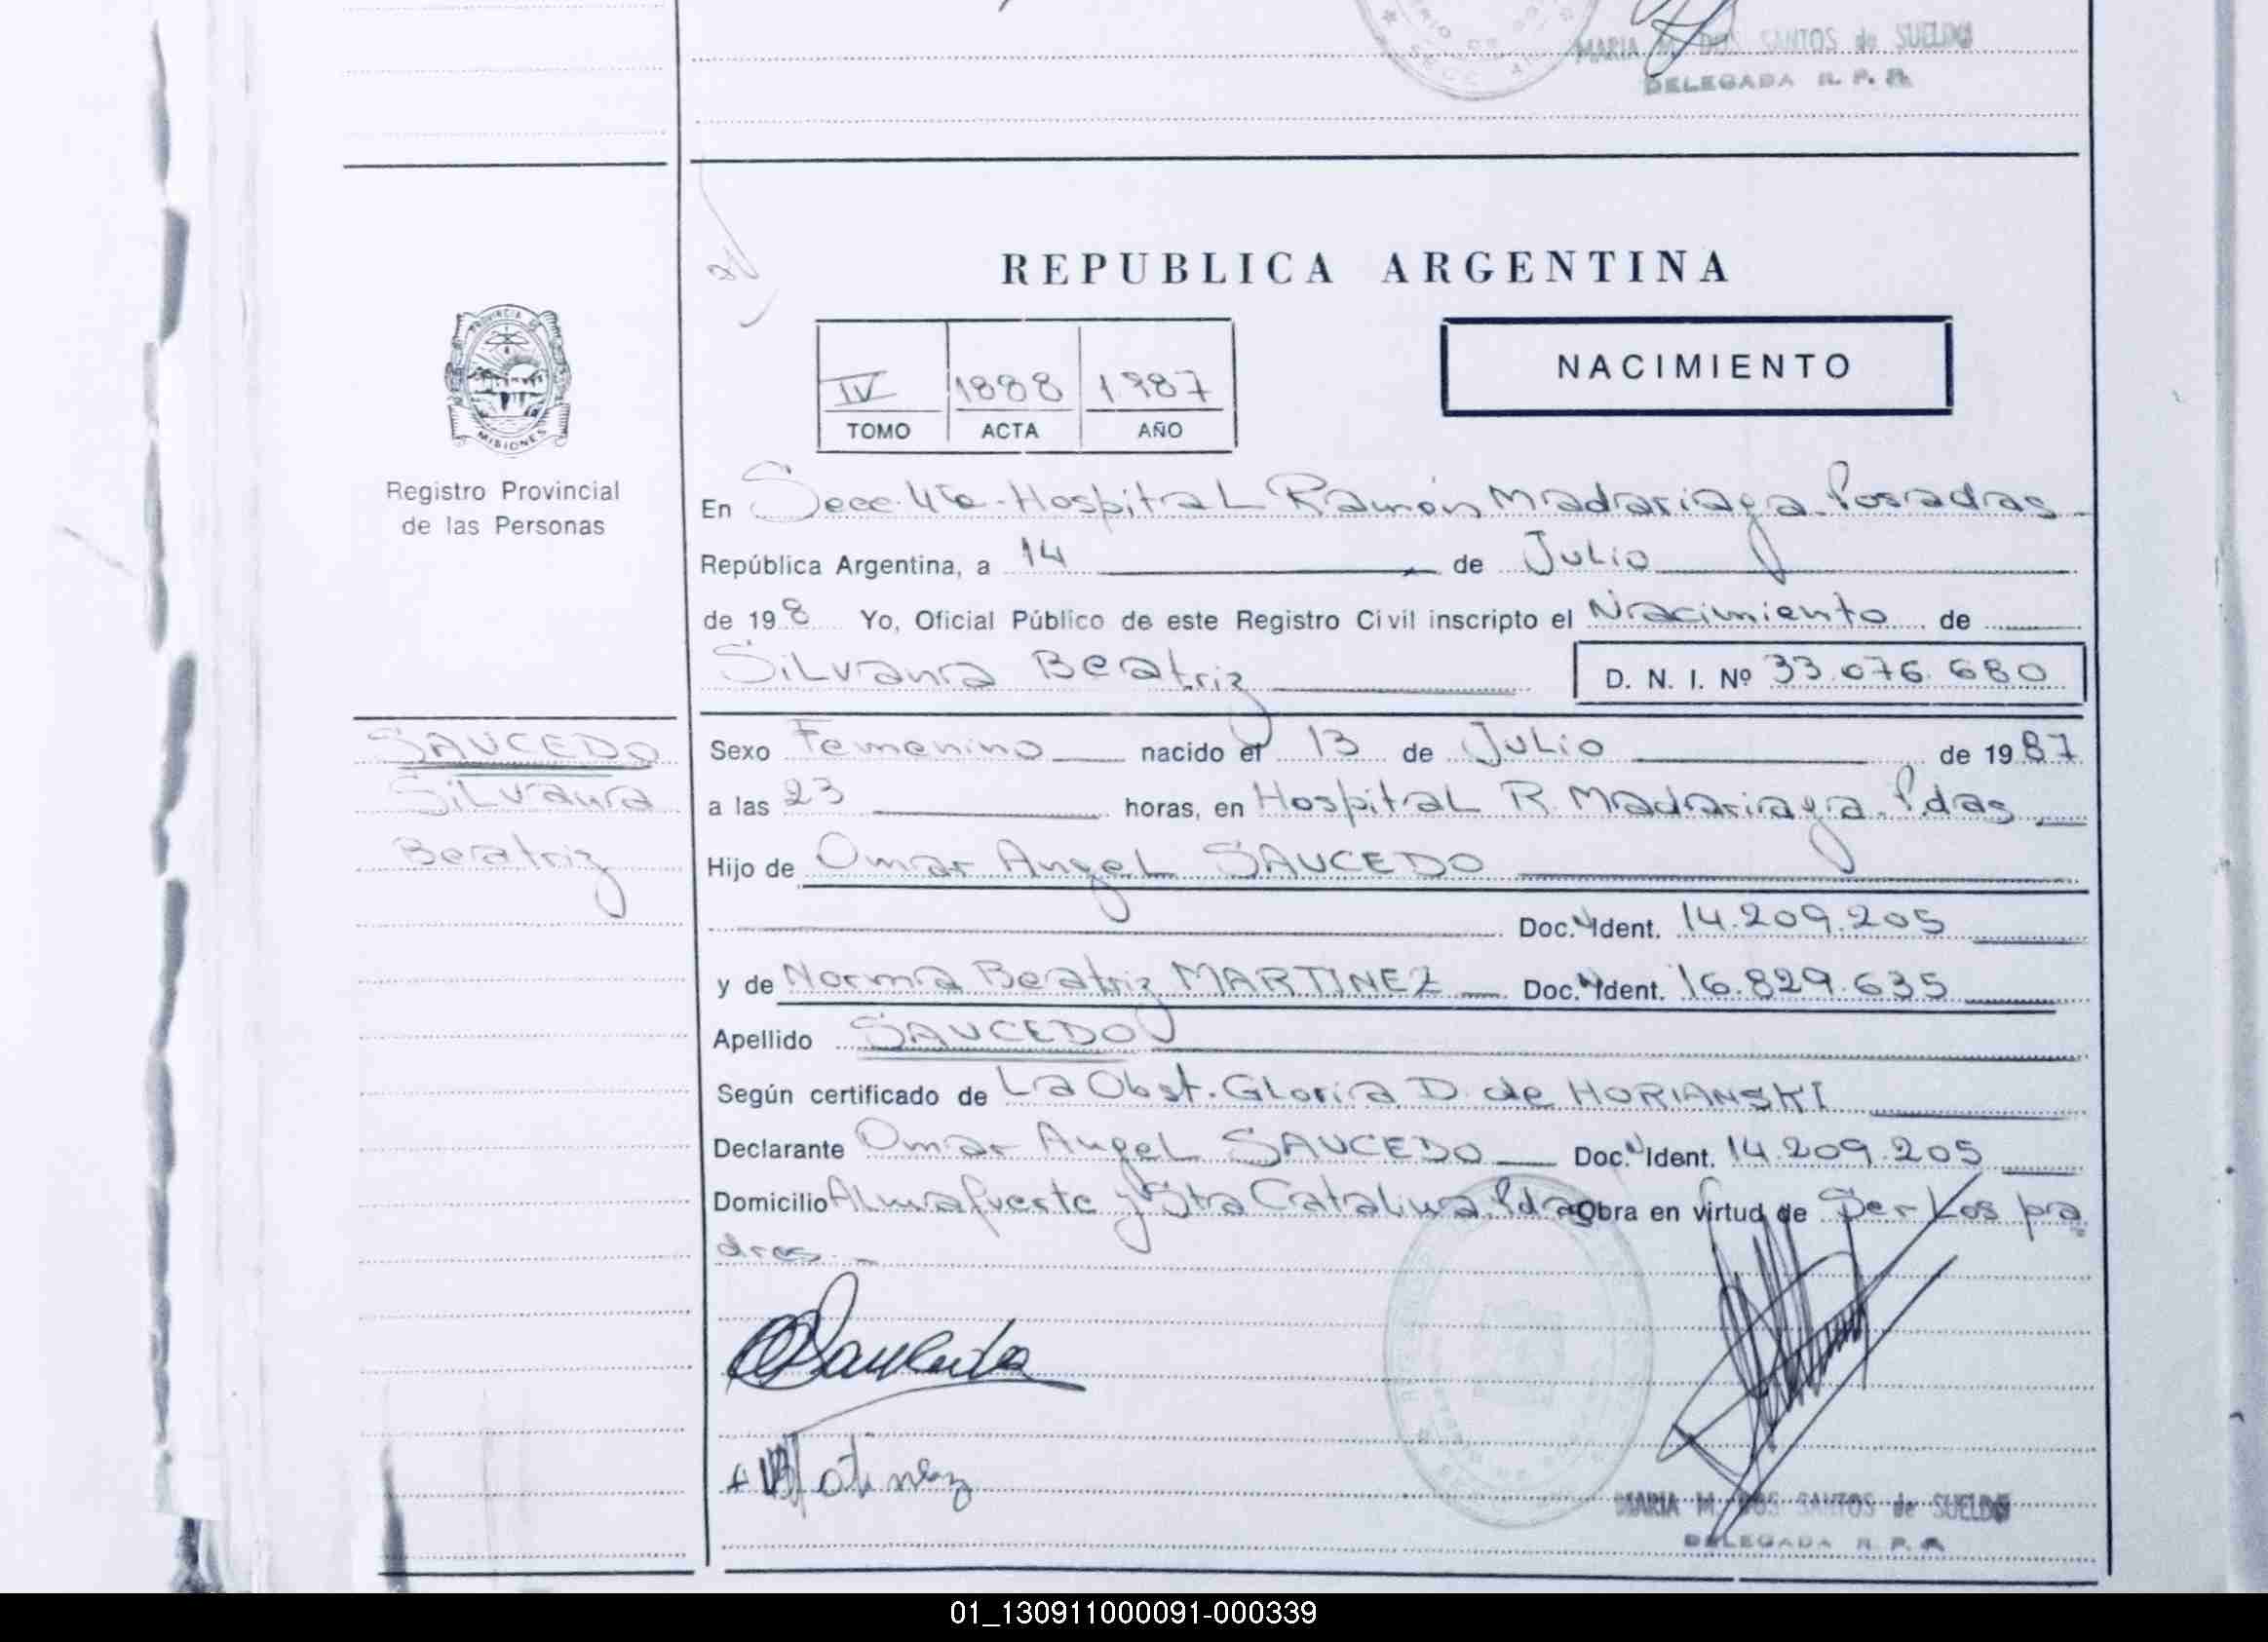 MARIA M. DOS SANTOS de SUELDO
DELEGADA R. P. P.
REPUBLICA ARGENTINA
PROVINCIA DE
MISIONES
Registro Provincial
de las Personas
IV 1888 1987
TOMO ACTA AÑO
NACIMIENTO
En Secc. 4ta - Hospital Ramón Madariaga - Posadas
República Argentina, a 14 de Julio
de 198 Yo, Oficial Público de este Registro Civil inscripto el Nacimiento de
Silvana Beatriz D. N. I. Nº 33.076.680
SAUCEDO
Silvana
Beatriz
Sexo Femenino nacido el 13 de Julio de 1987
a las 23 horas, en Hospital R. Madariaga - Pdas
Hijo de Omar Angel SAUCEDO
Doc. Ident. 14.209.205
y de Norma Beatriz MARTINEZ Doc. Ident. 16.829.635
Apellido SAUCEDO
Según certificado de La Obst. Gloria D. de HORIANSKI
Declarante Omar Angel SAUCEDO Doc. Ident. 14.209.205
Domicilio Almafuerte y Sta Catalina. Pdas Obra en virtud de Ser los pa
dres.
MARIA M. DOS SANTOS de SUELDO
DELEGADA R. P. P.
01_130911000091-000339